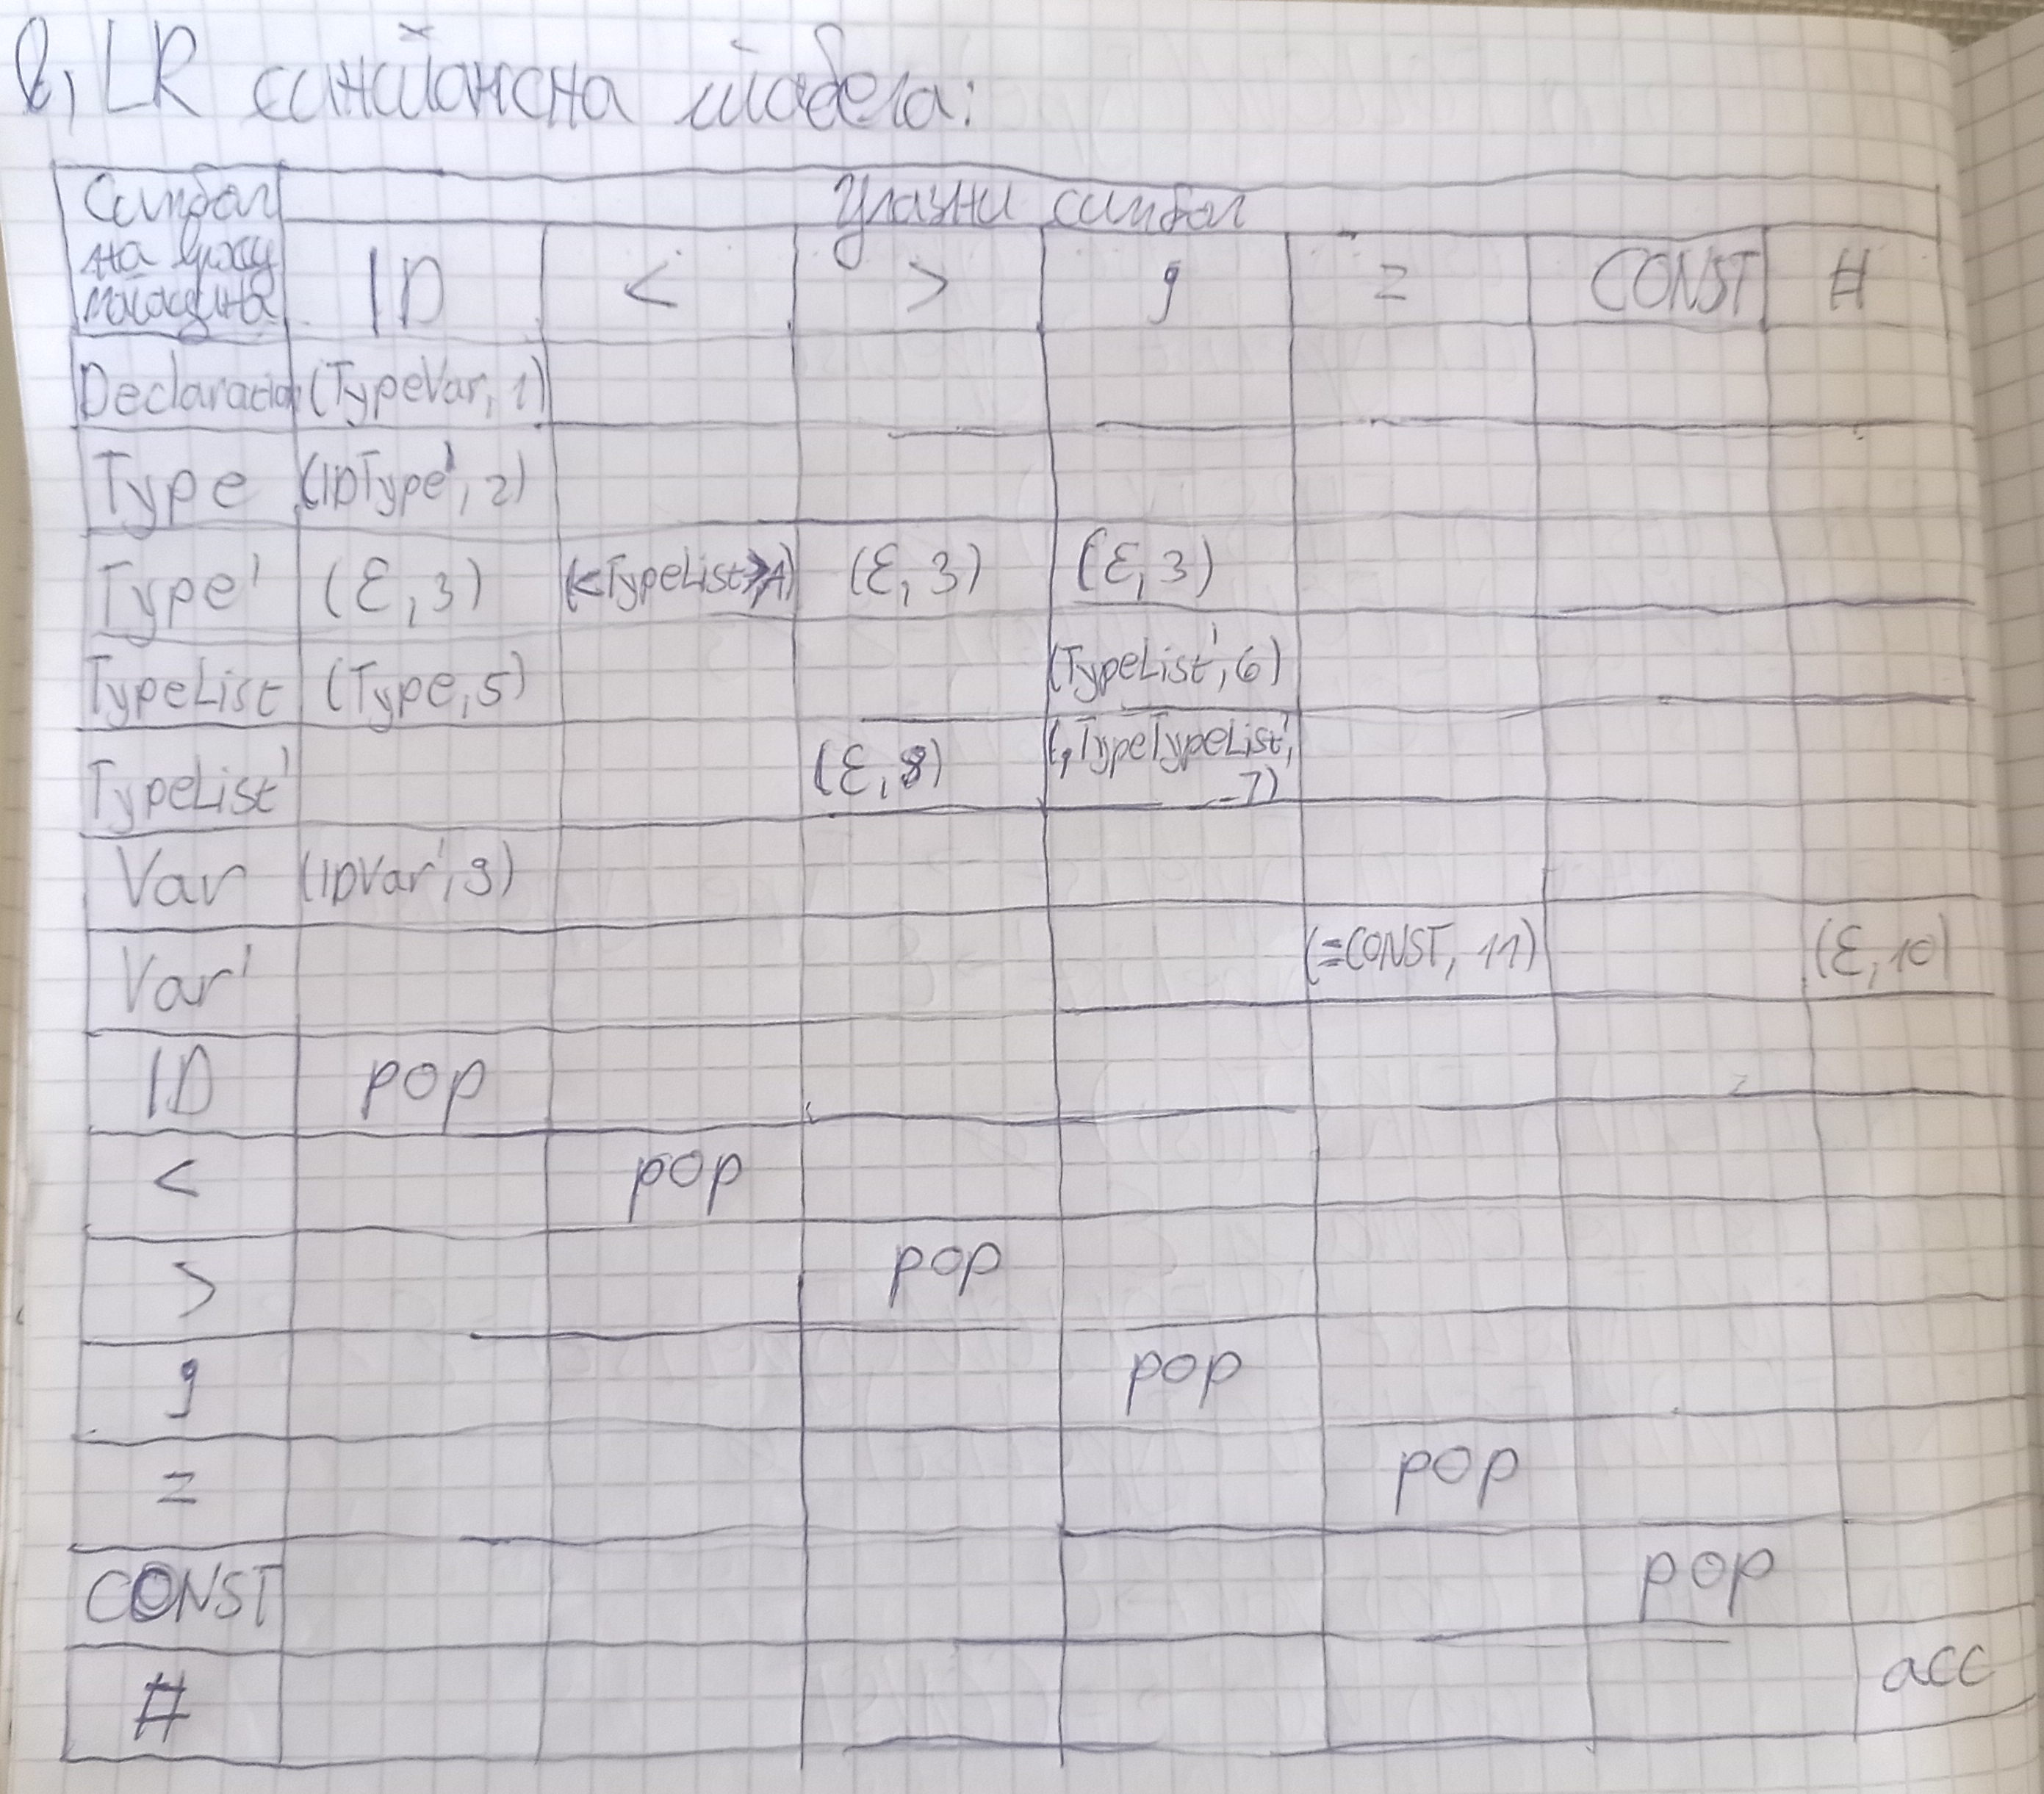 в) LR синтаксна табела:
Симбол на врху магацина | Улазни симбол
ID | < | > | , | = | CONST | #
Declaration | (TypeVar, 1)
Type | (IDType', 2)
Type' | (ε, 3) | (<TypeList>, 4) | (ε, 3) | (ε, 3)
TypeList | (Type, 5) | (TypeList', 6)
TypeList' | (ε, 8) | (, TypeTypeList', 7)
Var | (IDVar', 9)
Var' | (=CONST, 11) | (ε, 10)
ID | pop
< | pop
> | pop
, | pop
= | pop
CONST | pop
# | acc